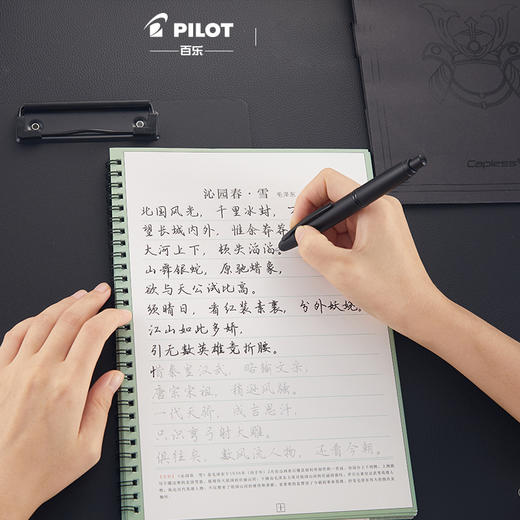 PILOT
百乐
Capless
沁园春·雪 毛泽东
北国风光，千里冰封，
望长城内外，惟余莽莽
大河上下，顿失滔滔
山舞银蛇，原驰蜡象，
欲与天公试比高。
须晴日，看红装素裹，分外妖娆。
江山如此多娇，
引无数英雄竞折腰。
惜秦皇汉武，略输文采，
唐宗宋祖，稍逊风骚。
一代天骄，成吉思汗，
只识弯弓射大雕。
俱往矣，数风流人物，还看今朝。